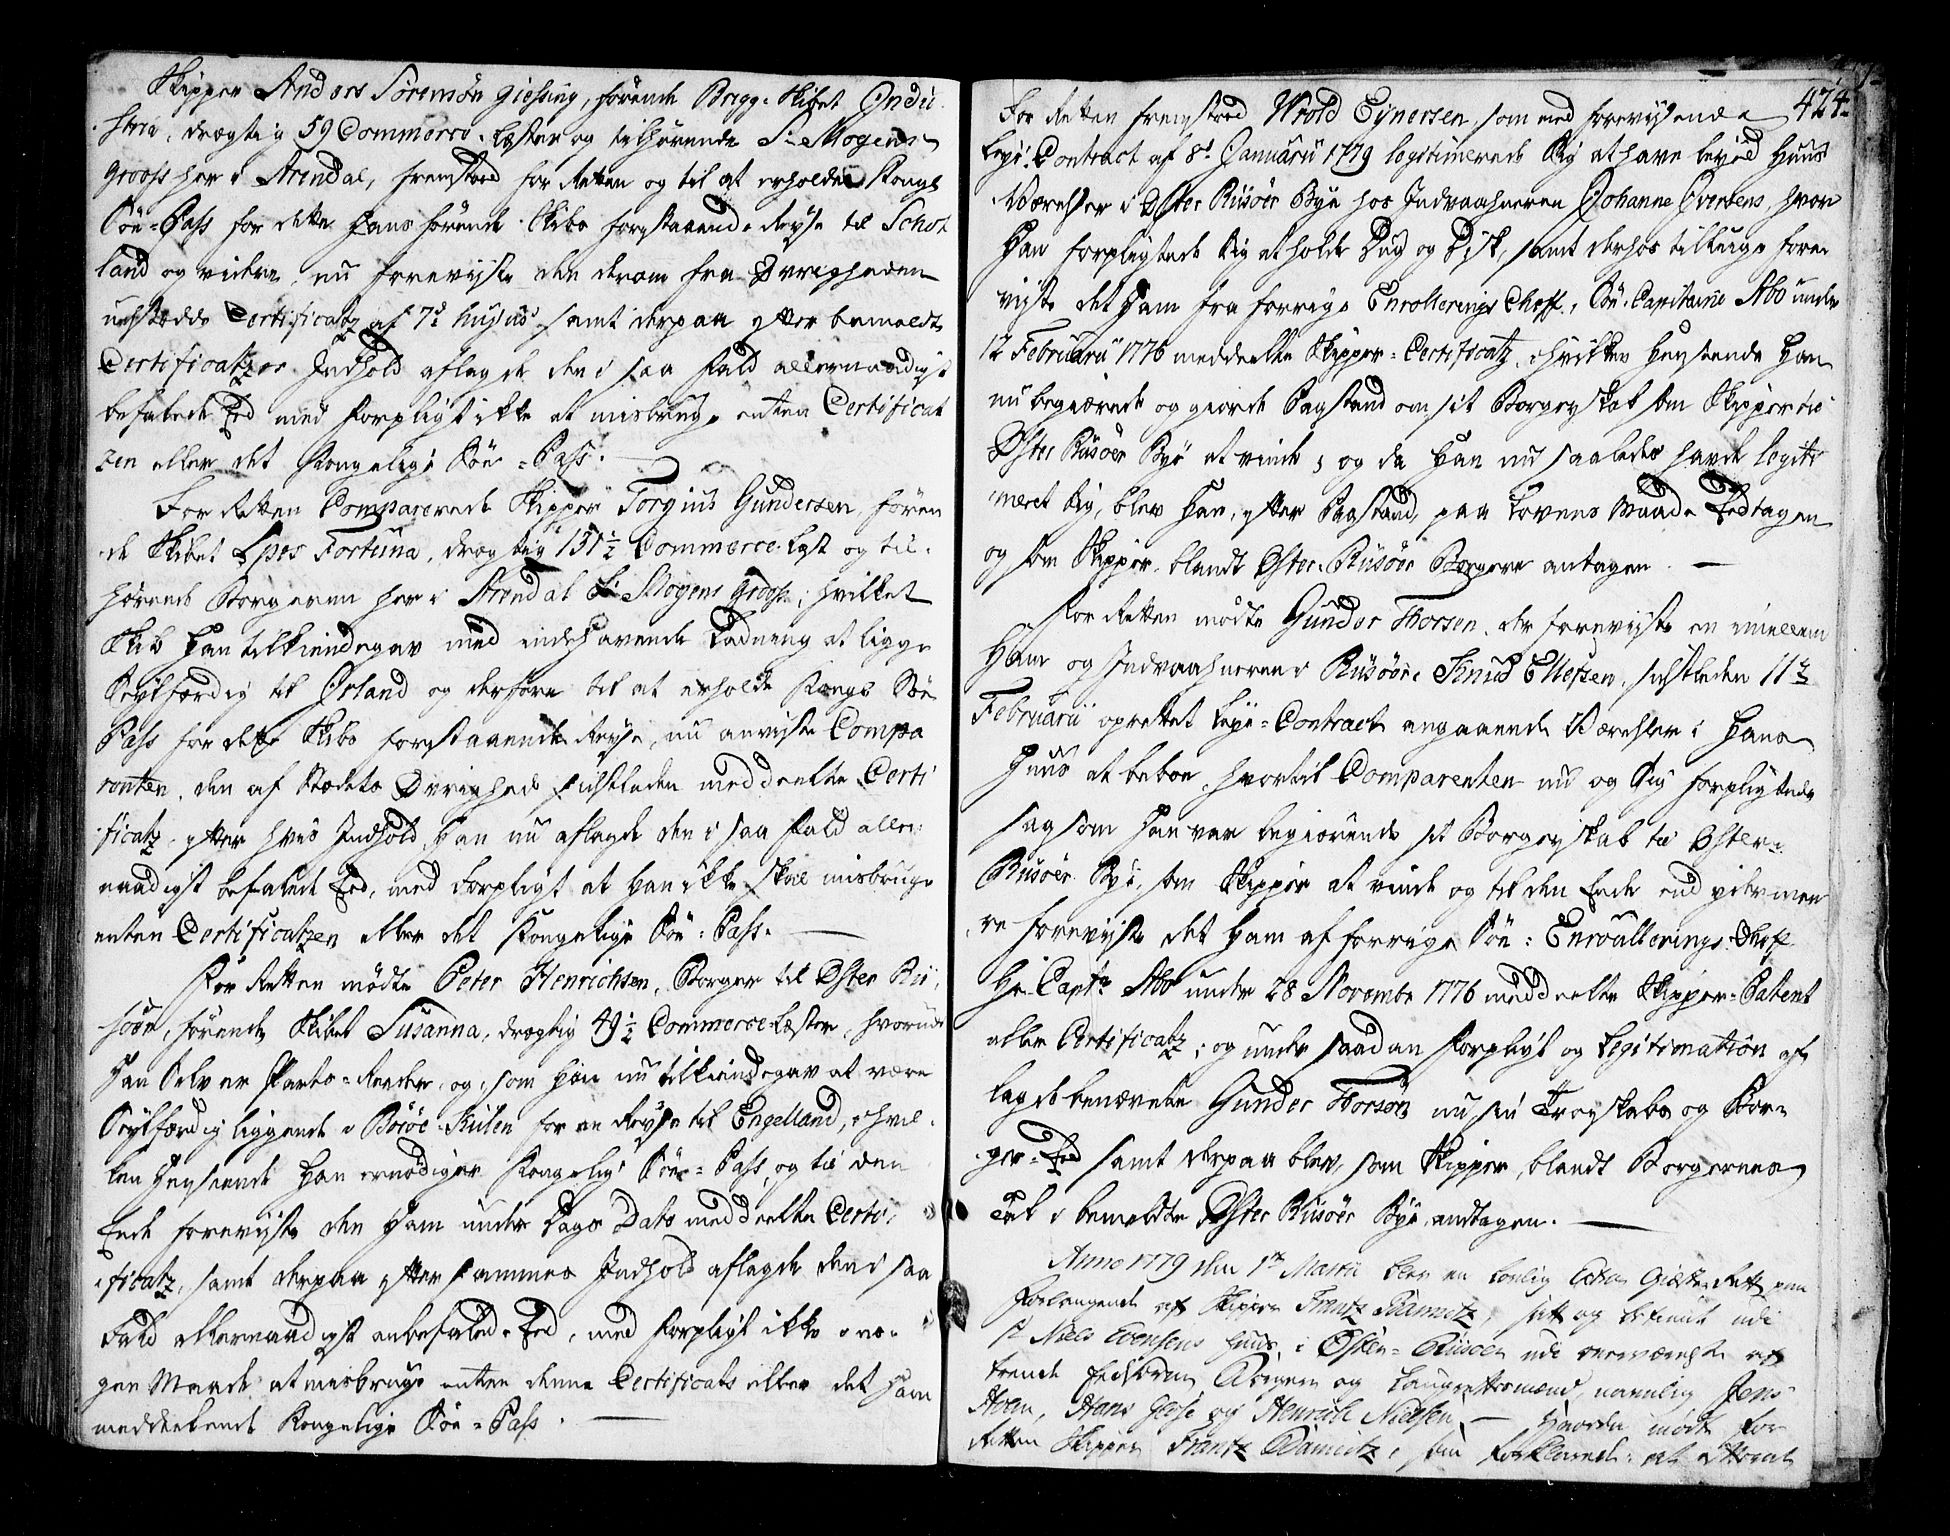 Skipper Anders Sörensön Giessing, förende Brigg-Skibet Indu-
strie, drægtig 59 Commerce-Læster og tilhörende Sr Mogens
Grooss her i Arendal, fremstoed for Retten og til at erholde Kongl
Söe-Pass for dette Hans förende Skibs forestaaende Reyse til Schot
land og videre, nu foreviiste den derom fra Övrigheden
udstædde Certificatz af 7de hujus samt derpaa efter bemeldte
Certificatzes Indhold aflagde den i saa Fald allernaadigst
befalede Eed med Forpligt ikke at misbruge enten Certificat
zen eller det Kongelige Söe-Pass.
For Retten Comparerede Skipper Torgius Gundersen, fören
de Skibet Spes Fortuna, drægtig 131½ Commerce-Læst og til-
hörende Borgeren her i Arendal Sr Mogens Grooss; hvilket
Skib Han tilkiendegav med indehavende Ladning at ligge
Seylfærdig til Irland og derfore til at erholde Kongl Söe
Pass for dette Skibs forestaaende Reyse, nu anviiste Compa
renten, den af Stædets Övrighed sidstleden meddeelte Certi
ficatz, efter hvis Indhold Han nu aflagde den i saa Fald aller-
naadigst befalede Eed, med Forpligt at Han ikke skal misbruge
enten Certificatzen eller det Kongelige Söe-Pass.
For Retten mödte Peter Henrichsen, Borger til Öster Rii-
söer, förende Skibet Susanna, drægtig 49½ Commerce Læster, hvorudi
Han Selv er Parts-Reeder, og som Han nu tilkiendegav at være
Seylfærdig liggende i Böröe-Kilen for en Reyse til Engelland, i hvil-
ken Henseende Han ernödiger Kongelig Söe-Pass, og til den
Ende foreviiste den Ham under Dags Dato meddeelte Certi-
ficatz, samt derpaa efter sammes Indhold aflagde den i saa
Fald allernaadigst anbefalede Eed, med Forpligt ikke i no-
gen Maade at misbruge enten denne Certificats eller det Ham
meddeelende Kongelige Söe-Pass.
424
For Retten fremstoed Wrold Eynersen, som med foreviisende
Leye-Contract af 8de Januarii 1779 legitimerede Sig at have leyed Huus
Værelser i Öster Riisöer Bye hos Indvaaneren Johanne Overtens, hvor
Han forpligtede Sig at holde Dug og Disk, samt derhos tillige fore-
viiste det Ham fra forrige Enrollerings Cheff, Söe-Capitaine Abo under
12 Februarii 1776 meddeelte Skipper-Certificatz, i hvilken Henseende Han
nu begiærede og giorde Paastand om sit Borgerskab som Skipper til
Öster Riisöer Bye at vinde; og da Han nu saaledes havde legiti
meret Sig, blev Han, efter Paastand, paa Lovens Maade Eedtagen
og som Skipper, blandt Öster-Riisöer Borgere antagen.
For Retten mödte Gunder Thorsen, der foreviiste en imellem
Ham og Indvaaneren i Riisöer Knud Ellefsen, sidstleden 11te
Februarii oprettet Leye-Contract angaaende Værelser i Hans
Huus at beboe, hvortil Comparenten nu og Sig forpligtede
saasom Han var begiærende sit Borgerskab til Öster-
Riisöer Bye, som Skipper at vinde og til den Ende end ydermee
re foreviiste det Ham af forrige Söe-Enroullerings-Cheff
Hr Captn Abo under 28 Novembr 1776 meddeelte Skipper-Patent
eller Certificatz; og under saadan Forpligt og Legitimation af
lagde benævnte Gunder Thorsön nu sin Troeskabs og Bor-
ger-Eed samt derpaa blev, som Skipper, blandt Borgernes
Tal i bemeldte Öster Riisöer Bye, andtagen.
Anno 1779 den 1te Martii blev en lovlig Extra Giæste Rett paa
Forlangende af Skipper Frantz Dammitz, sett og betient udi
Sr Niels Evensens Huus i Öster-Riisöer udi overværelse af
trende Eedsorne Borgere og Laugrettesmænd, navnlig Jens
Aven, Hans Giese og Henrich Nielsen — Hvorda mödte for
Retten Skipper Frantz Dammitz, som forklarede: at